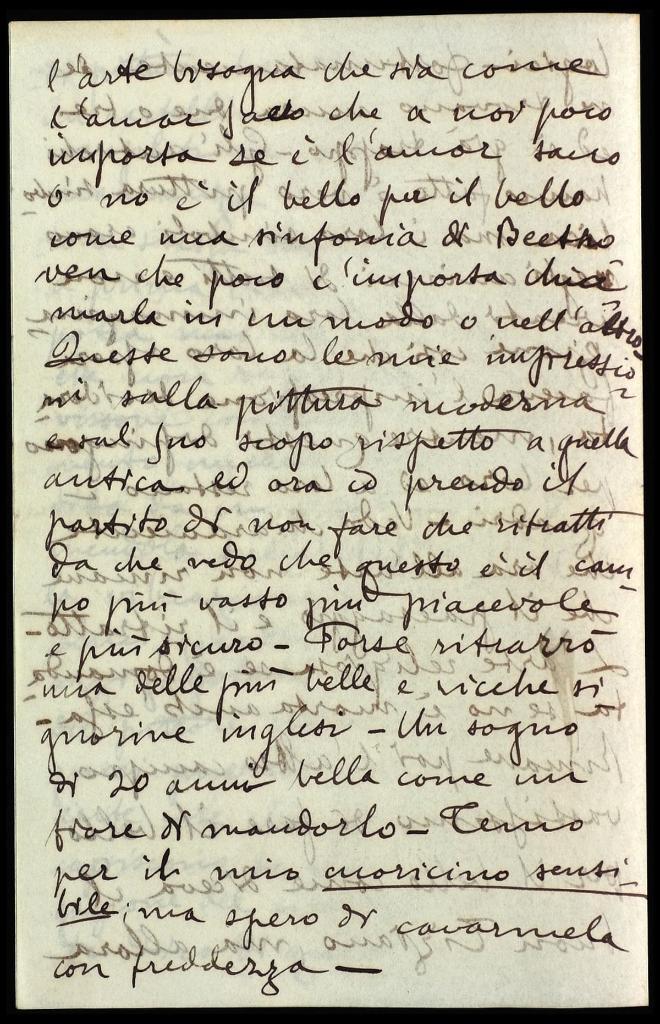 l'arte bisogna che sia come
l'amor sacro che a noi poco
importa se è l'amor sacro
o no è il bello per il bello
come una sinfonia di Beetho
ven che poco c'importa chia
marla in un modo o nell'altro
Queste sono le mie impressio
ni sulla pittura moderna
e sul suo scopo rispetto a quella
antica ed ora io prendo il
partito di non fare che ritratti
da che vedo che questo è il cam
po più vasto più piacevole
e più sicuro - Forse ritrarrò
una delle più belle e ricche si
gnorine inglesi - Un sogno
di 20 anni bella come un
fiore di mandorlo - Temo
per il mio cuoricino sensi-
bile; ma spero di cavarmela
con freddezza —